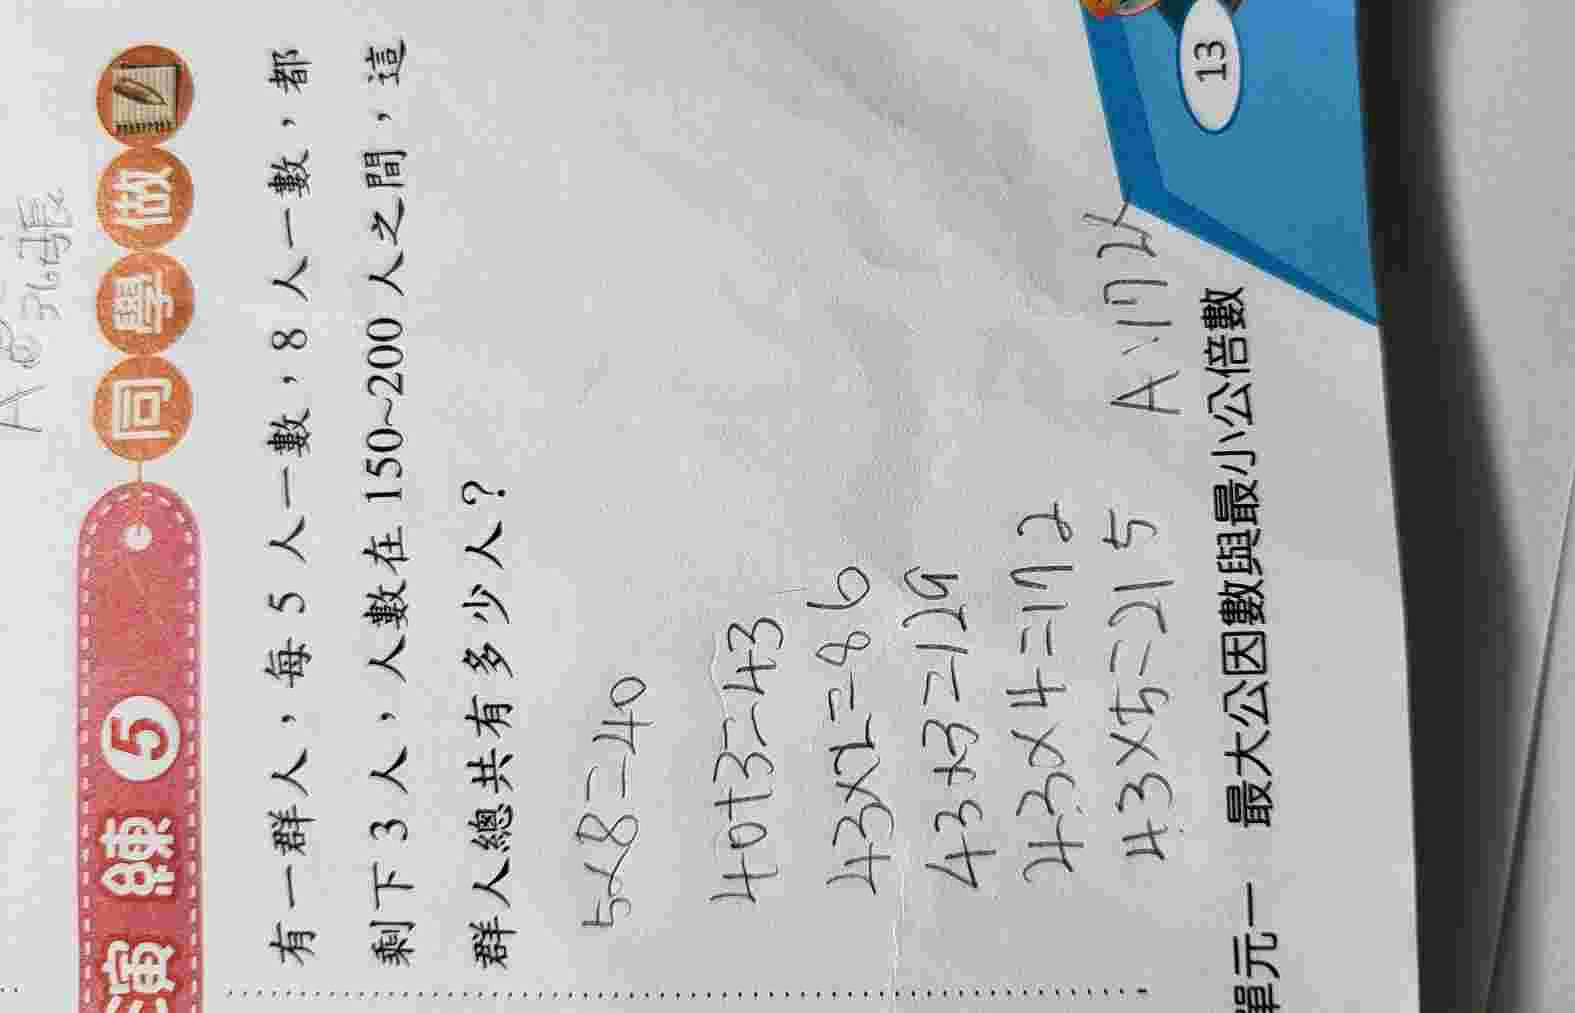 A：36張
演練5 同學做
有一群人，每 5 人一數，8 人一數，都
剩下 3 人，人數在 150~200 人之間，這
群人總共有多少人？
5×8=40
40+3=43
43×2=86
43×3=129
43×4=172
43×5=215
A：172人
單元一 最大公因數與最小公倍數
13